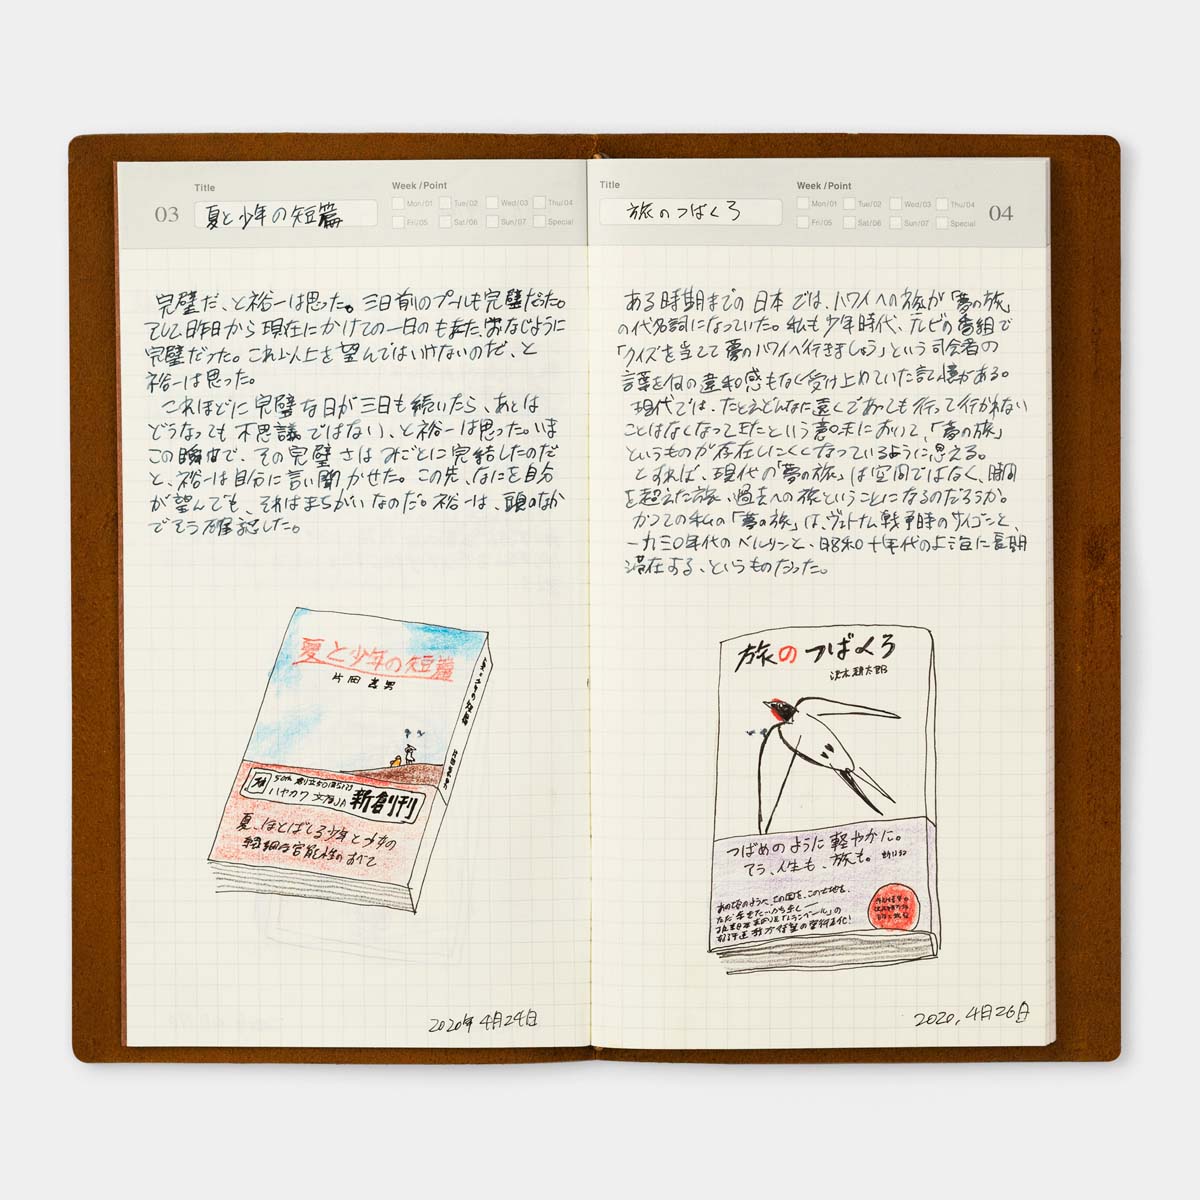 03
Title
夏と少年の短篇
Week/Point
Mon/01 Tue/02 Wed/03 Thu/04
Fri/05 Sat/06 Sun/07 Special
完璧だ、と裕一は思った。三日前のプールも完璧だった。
そして昨日から現在にかけての一日もまた、おなじように
完璧だった。これ以上を望んではいけないのだ、と
裕一は思った。
これほどに完璧な日が三日も続いたら、あとは
どうなっても不思議ではない、と裕一は思った。いま
この瞬間で、その完璧さはみごとに完結したのだ
と、裕一は自分に言い聞かせた。この先、なにを自分
が望んでも、それはまちがいなのだ。裕一は、頭のなか
でそう確認した。
夏と少年の短篇
片岡義男
夏と少年の短篇
片岡義男
50th
ハヤカワ文庫JA
新創刊
夏、ほとばしる少年と少女の
繊細な官能性のすべて
2020年4月24日
Title
旅のつばくろ
Week/Point
Mon/01 Tue/02 Wed/03 Thu/04
Fri/05 Sat/06 Sun/07 Special
04
ある時期までの日本では、ハワイへの旅が「夢の旅」
の代名詞になっていた。私も少年時代、テレビの番組で
「クイズを当てて夢のハワイへ行きましょう」という司会者の
言葉を何の違和感もなく受け止めていた記憶がある。
現代では、たとえどんなに遠くであっても行って行かれない
ことはなくなってきたという意味において、「夢の旅」
というものが存在しにくくなっているように思える。
とすれば、現代の「夢の旅」は空間ではなく、時間
を超えた旅、過去への旅ということになるのだろうか。
かつての私の「夢の旅」は、ヴェトナム戦争時のサイゴンと、
一九三〇年代のベルリンと、昭和十年代の上海に長期
滞在する、というものだった。
旅のつばくろ
沢木耕太郎
つばめのように軽やかに。
人生も、旅も。
あの頃のようへ、この国を、この土地を、
ただ
2020,4月26日